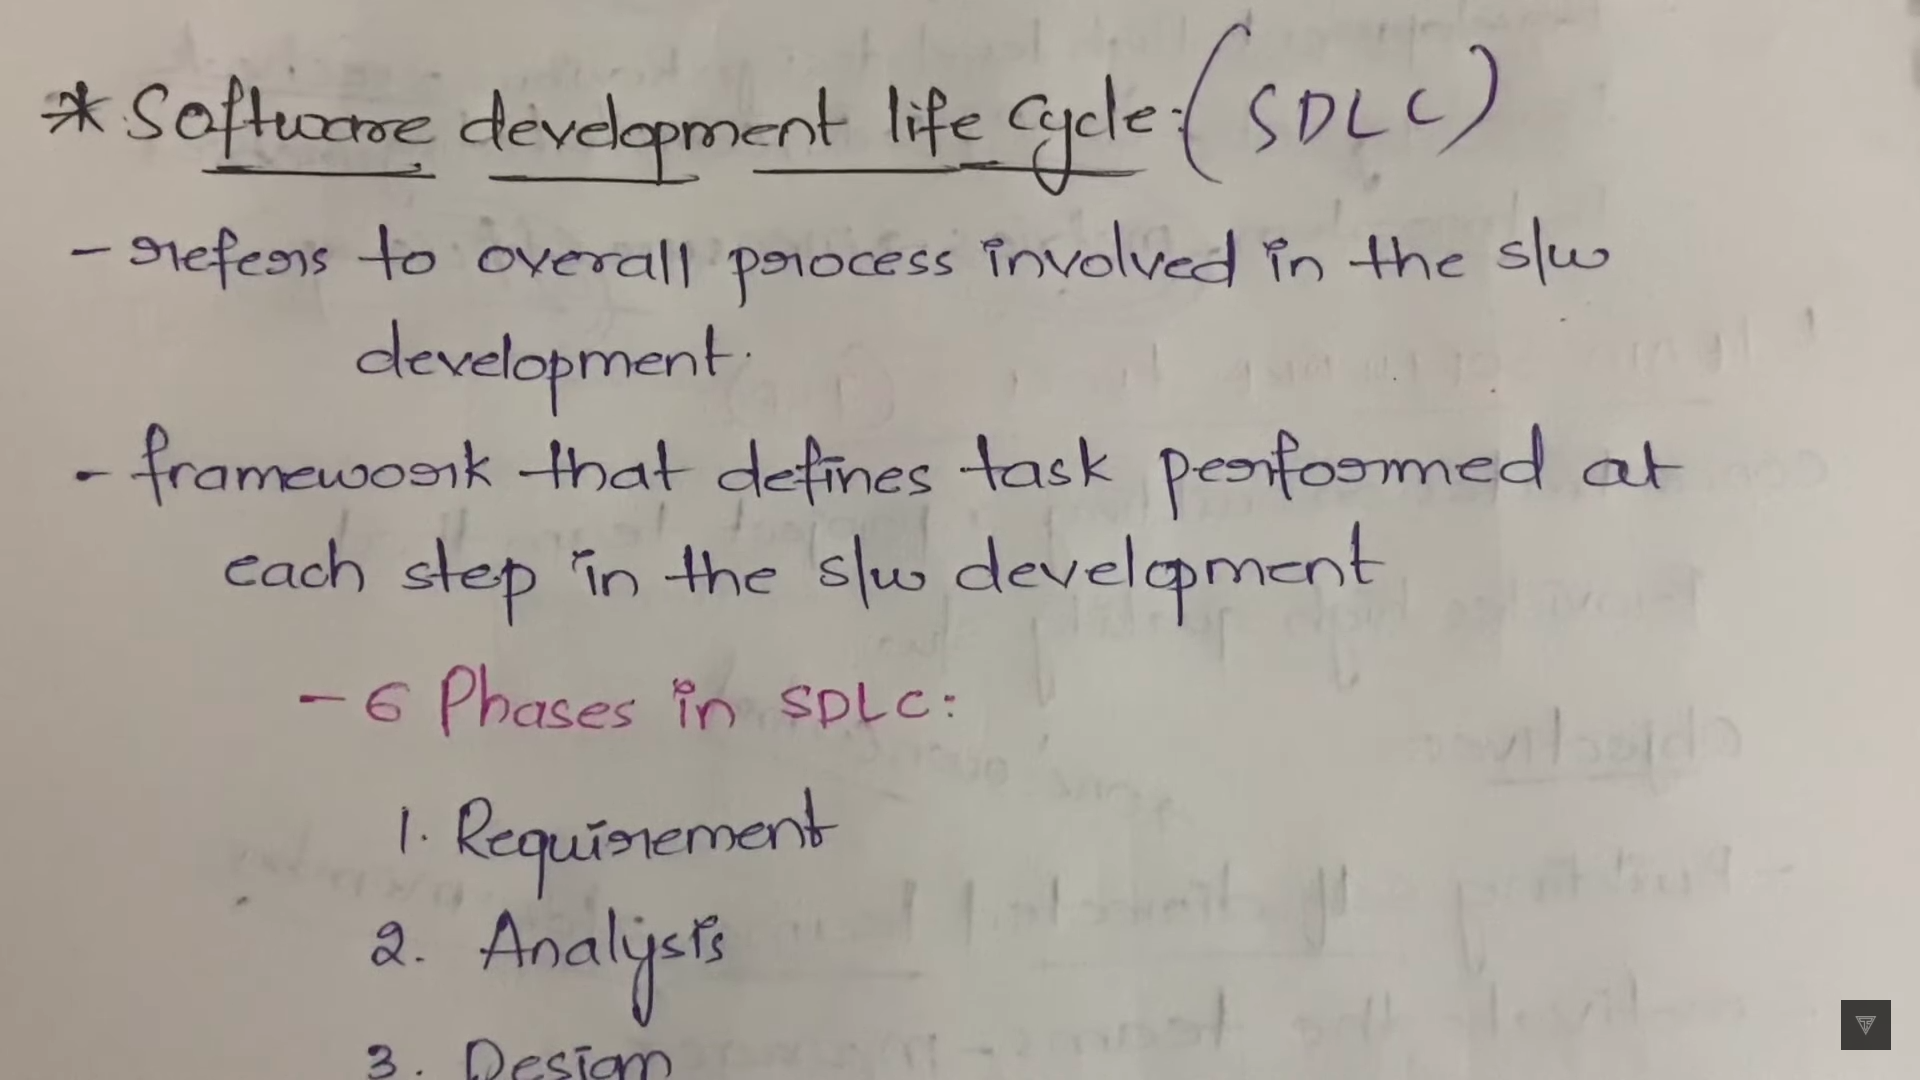 * Software development life cycle: (SDLC)
- refers to overall process involved in the s/w
development.
- framework that defines task performed at
each step in the s/w development
- 6 Phases in SDLC:
1. Requirement
2. Analysis
3. Design